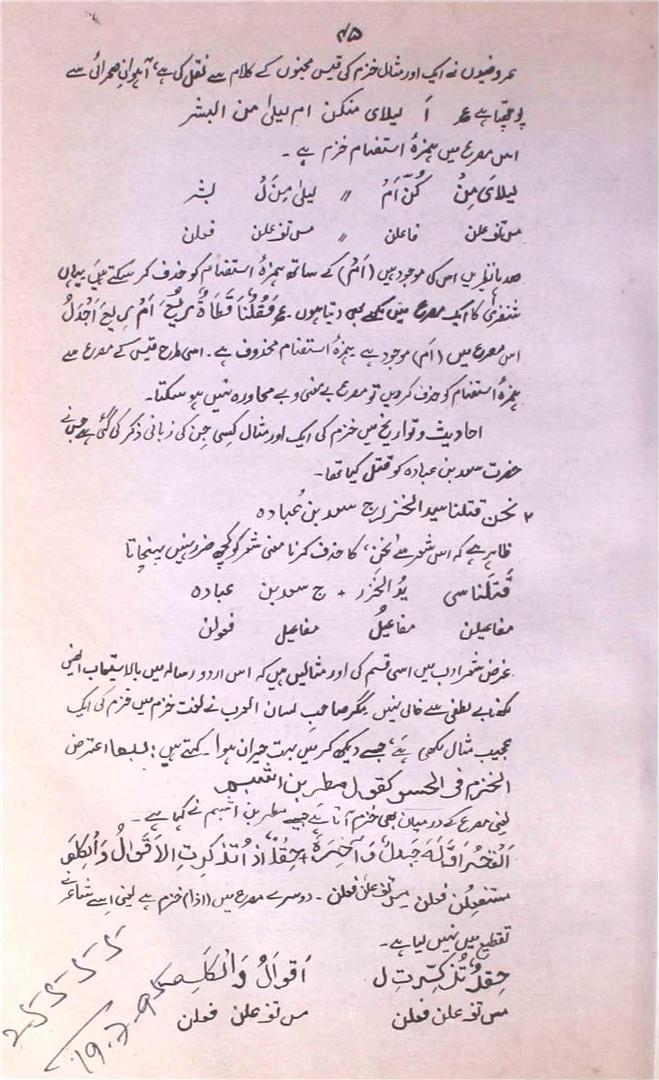 ۴۵
عروضیوں نے ایک اور مثال خزم کی قیس مجنوں کے کلام سے نقل کی ہے، آہوانِ صحرائی سے
پوچھتا ہے ع اَ لیلای منکن ام لیلیٰ من البشر
اس مصرع میں ہمزۂ استفہام خزم ہے۔
لیلایَ مِنْ کُنّ اَمْ 〃 لیلیٰ مِنَ لْ بشر
مس تفعلن فاعلن 〃 مس تفعلن فعلن
صدہا نظیریں اس کی موجود ہیں (اَمْ) کے ساتھ ہمزۂ استفہام کو حذف کر سکتے ہیں یہاں
شنفریٰ کا ایک مصرع میں لکھے دیتا ہوں۔ ع فَقُلْنَا قَطَاةٌ رِیْعَ اَمْ رِیعَ اَجْدَلُ
اس مصرع میں (اَم) موجود ہے ہمزۂ استفہام محذوف ہے۔ اسی طرح قیس کے مصرع سے
ہمزۂ استفہام کو حذف کر دیں تو مصرع بے معنی و بے محاورہ نہیں ہو سکتا۔
احادیث و تواریخ میں خزم کی ایک اور مثال کسی جِن کی زبانی ذکر کی گئی ہے جس نے
حضرت سعد بن عبادہ کو قتل کیا تھا۔
۲ نحن قتلنا سید الخزرج سعد بن عُبادہ
ظاہر ہے کہ اس شعر سے نحن، کا حذف کرنا معنی شعر کو کچھ ضرر نہیں پہنچاتا
قَتَلْنا سی یدُ الخَزْر + ج سعد بن عبادہ
مفاعیلن مفاعیلُ مفاعیل فعولن
غرض شعر ادب میں اسی قسم کی اور مثالیں ہیں کہ اس اردو رسالہ میں بالاستیعاب انھیں
لکھنا بے لطفی سے خالی نہیں مگر صاحب لسان العرب نے لغت خزم میں خزم کی ایک
عجیب مثال لکھی ہے، جسے دیکھ کر میں بہت حیران ہوا۔ کہتے ہیں: اعترض
الخزم فی الحشو کقول مطر بن اشیم
یعنی مصرع کے درمیان بھی خزم آتا ہے جیسے مطر بن اشیم نے کہا ہے۔
اَلفَخْرُ اَوَّلُهٗ جَهلٌ وَآخِرُهٗ حِقْدٌ اِذا تُذُکِّرتِ الاَقْوالُ وَالکَلِمُ
مستفعلن فعلن مس تفعلن فعلن۔ دوسرے مصرع میں (اذا) خزم ہے یعنی اِسے شاعر نے
تقطیع میں نہیں لیا ہے۔
حِقْدٌ تُذُکِّرتِ ل اَقوالُ وَالکَلِمُ
مس تفعلن فعلن مس تفعلن فعلن